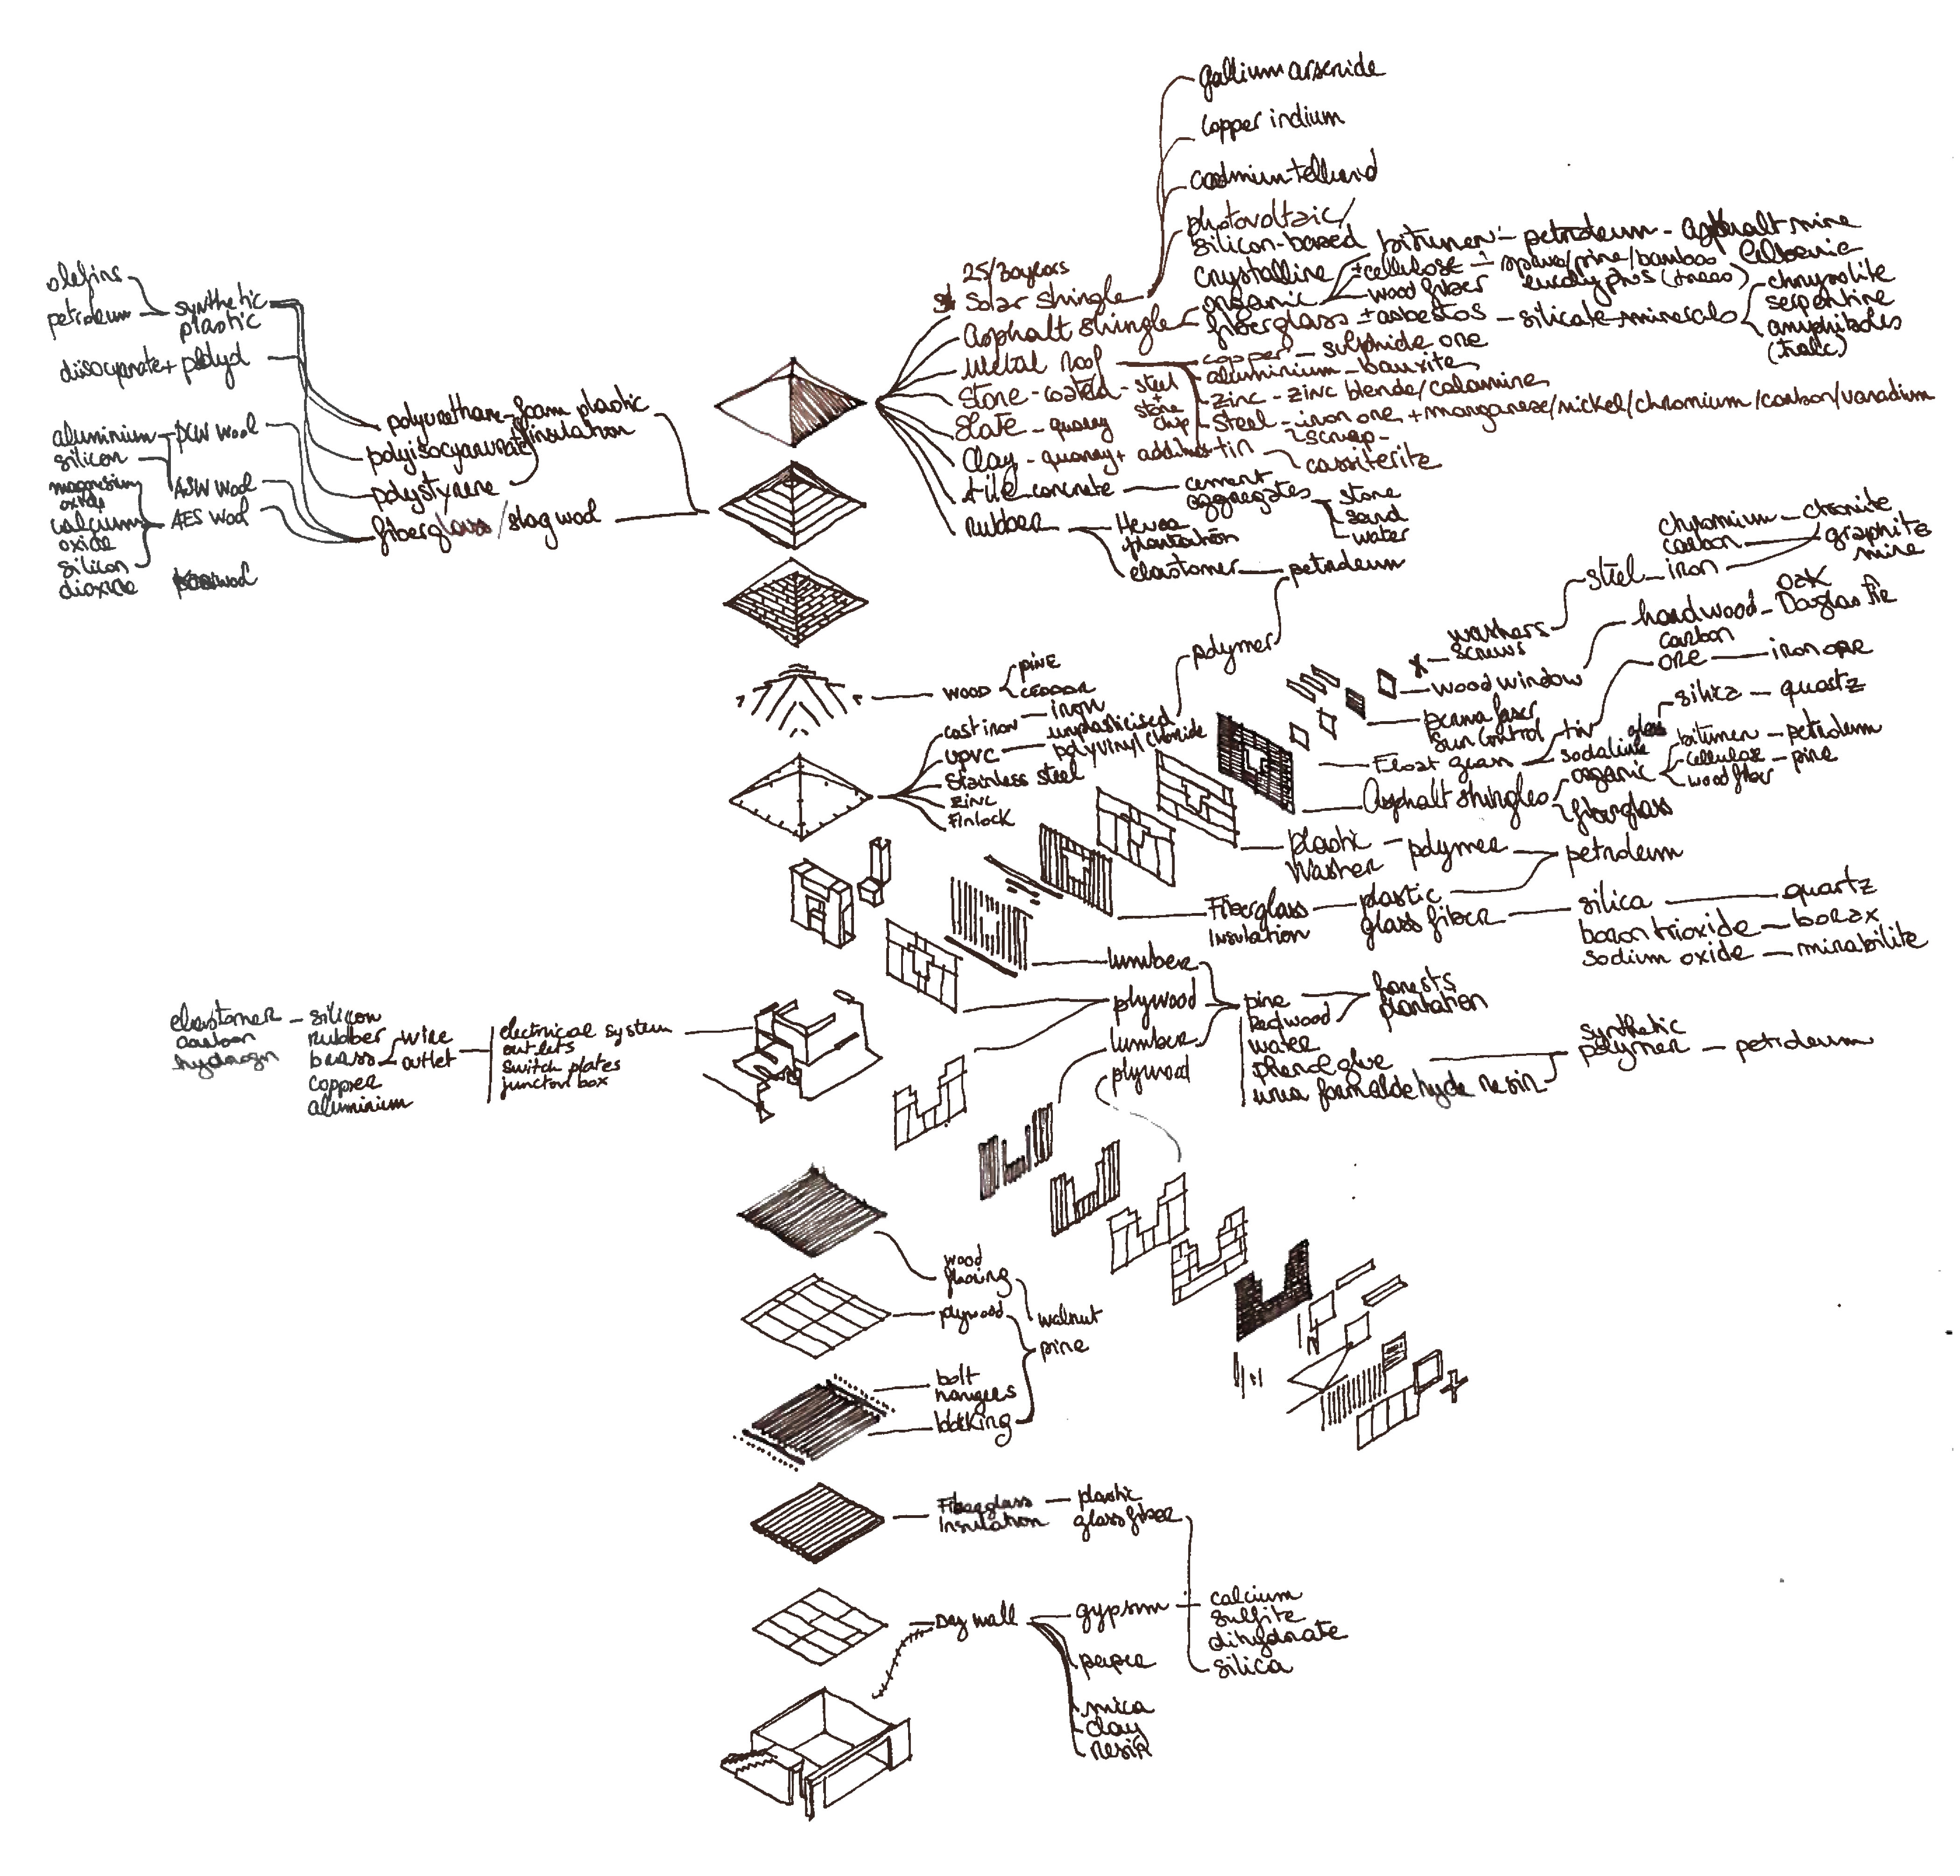 gallium arsenide
copper indium
cadmium tellurid
photovoltaic/
silicon-based
crystalline
bitumen - petroleum - asphalt mine
25/30years
Solar shingle
organic
± cellulose - spruce/pine/bamboo
wood fiber
eucalyptus (trees)
Asphalt shingle
fiberglass ± asbestos - silicate minerals
chrysolite
serpentine
amphiboles
(talc)
Metal roof
copper - sulphide ore
aluminium - bauxite
zinc - zinc blende/calamine
steel - iron ore + manganese/nickel/chromium/carbon/vanadium
scrap
tin
cassiterite
Stone-coated - steel
+
stone
chip
Slate - quarry
Clay - quarry + additives
tile concrete - cement
aggregates
stone
sand
water
rubber
Hevea
plantation
elastomer - petroleum
polymer
olefins
petroleum
synthetic
plastic
diisocyanate + polyol
polyurethane-foam plastic
insulation
polyisocyanurate
polystyrene
fiberglass / slag wool
aluminium
silicon
PCW wool
ASW wool
magnesium
oxide
calcium
oxide
silicon
dioxide
AES wool
wood
pine
cedar
cast iron - iron
UPVC - unplasticised
polyvinyl chloride
Stainless steel
zinc
Finlock
washers
screws
steel - iron
chromium - chromite
carbon
graphite
mine
wood window
hardwood - oak
Douglas Fir
sun control
carbon
ore - iron ore
Float glass
tin
soda lime
glass
silica - quartz
Asphalt shingles
organic
bitumen - petroleum
cellulose
wood fiber - pine
fiberglass
plastic - polymer - petroleum
washer
Fiberglass - plastic
Insulation
glass fiber - silica - quartz
boron trioxide - borax
sodium oxide - mirabilite
lumber
plywood
lumber
plywood
pine
Redwood
water
phenol glue
urea formaldehyde resin
forests
plantation
synthetic
polymer - petroleum
elastomer - silicon
carbon
hydrogen
rubber
brass
copper
aluminium
wire
outlet
electrical system
outlets
switch plates
junction box
wood
flooring
plywood
walnut
pine
bolt
hangers
blocking
Fiberglass - plastic
Insulation
glass fiber
Dry wall
gypsum
calcium
sulfite
dihydrate
silica
paper
mica
clay
resin